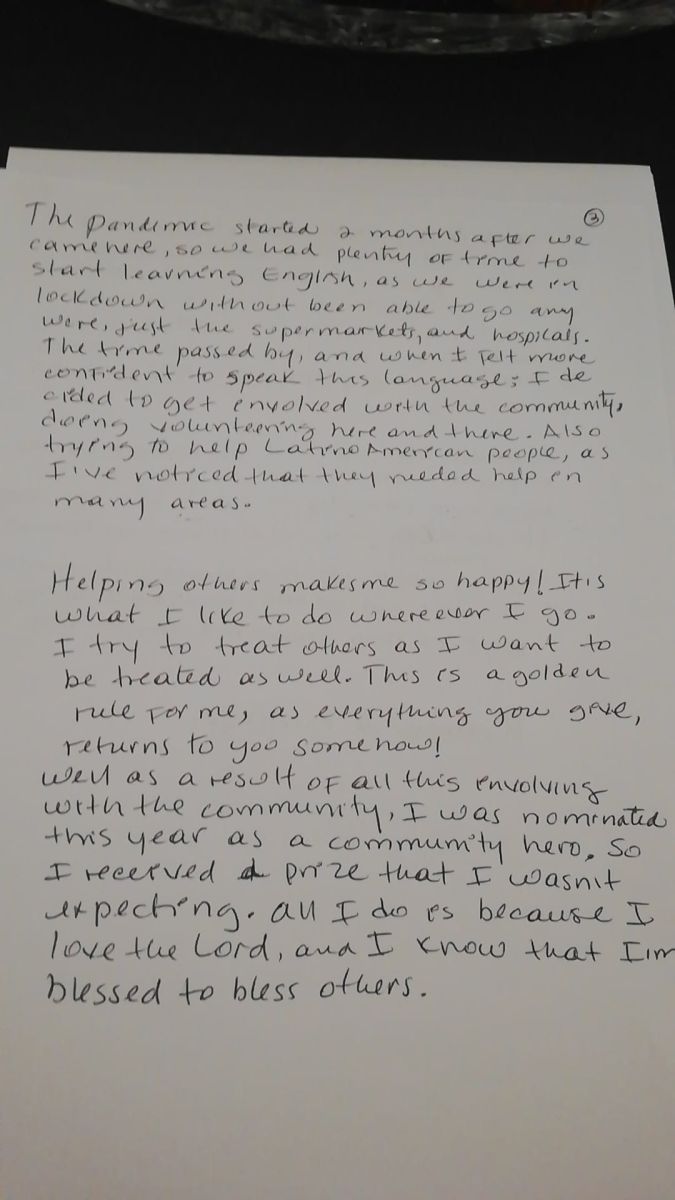 ③
The pandemic started 2 months after we
came here, so we had plenty of time to
start learning English, as we were in
lockdown without been able to go any
were, just the supermarkets, and hospitals.
The time passed by, and when I felt more
confident to speak this language; I de
cided to get envolved with the community,
doeng volunteering here and there. Also
trying to help Latino American people, as
I've noticed that they needed help en
many areas.
Helping others makes me so happy! It is
what I like to do whereever I go.
I try to treat others as I want to
be treated as well. This is a golden
rule for me, as everything you give,
returns to yoo somehow!
Well as a result of all this envolving
with the community, I was nominated
this year as a community hero. So
I received a prize that I wasn't
expecting. All I do is because I
love the Lord, and I know that I'm
blessed to bless others.